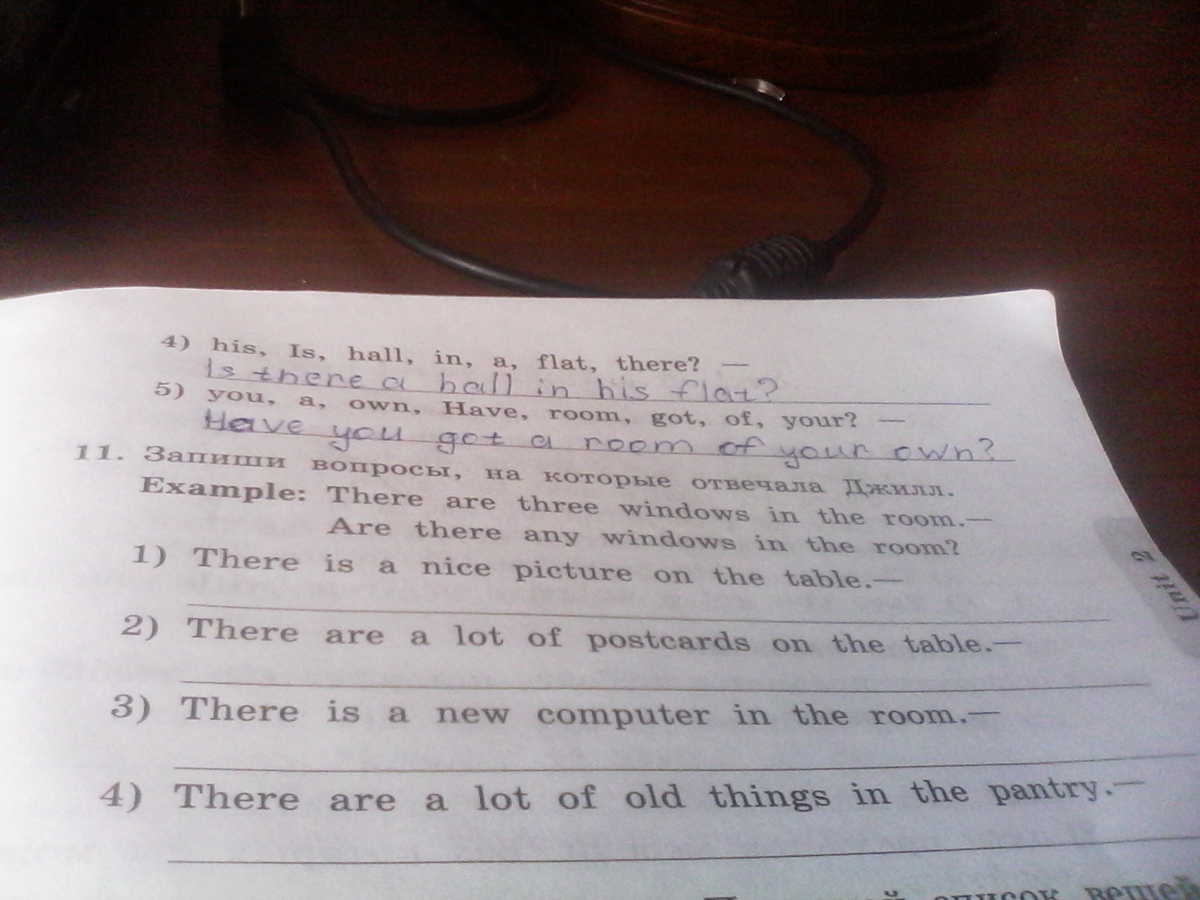 4) his, Is, hall, in, a, flat, there? —
Is there a hall in his flat?
5) you, a, own, Have, room, got, of, your? —
Have you got a room of your own?
11. Запиши вопросы, на которые отвечала Джилл.
Example: There are three windows in the room.—
Are there any windows in the room?
1) There is a nice picture on the table.—
2) There are a lot of postcards on the table.—
3) There is a new computer in the room.—
4) There are a lot of old things in the pantry.—
Unit 2
список вещей